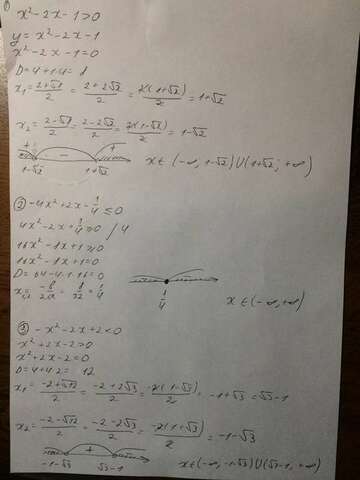 ① x² - 2x - 1 > 0
y = x² - 2x - 1
x² - 2x - 1 = 0
D = 4 + 4 = 8
x₁ = (2 + √8)/2 = (2 + 2√2)/2 = 2(1 + √2)/2 = 1 + √2
x₂ = (2 - √8)/2 = (2 - 2√2)/2 = 2(1 - √2)/2 = 1 - √2
+ - +
1 - √2 1 + √2 x ∈ (-∞, 1 - √2) U (1 + √2, +∞)
② -4x² + 2x - 1/4 ≤ 0
4x² - 2x + 1/4 ≥ 0 /4
16x² - 8x + 1 ≥ 0
16x² - 8x + 1 = 0
D = 64 - 4·1·16 = 0
x = -b/2a = 8/32 = 1/4
1/4
x ∈ (-∞, +∞)
③ -x² - 2x + 2 < 0
x² + 2x - 2 > 0
x² + 2x - 2 = 0
D = 4 + 4·2 = 12
x₁ = (-2 + √12)/2 = (-2 + 2√3)/2 = -2(1 - √3)/2 = -1 + √3 = √3 - 1
x₂ = (-2 - √12)/2 = (-2 - 2√3)/2 = -2(1 + √3)/2 = -1 - √3
+
-1 - √3 √3 - 1 x ∈ (-∞, -1 - √3) U (√3 - 1, +∞)